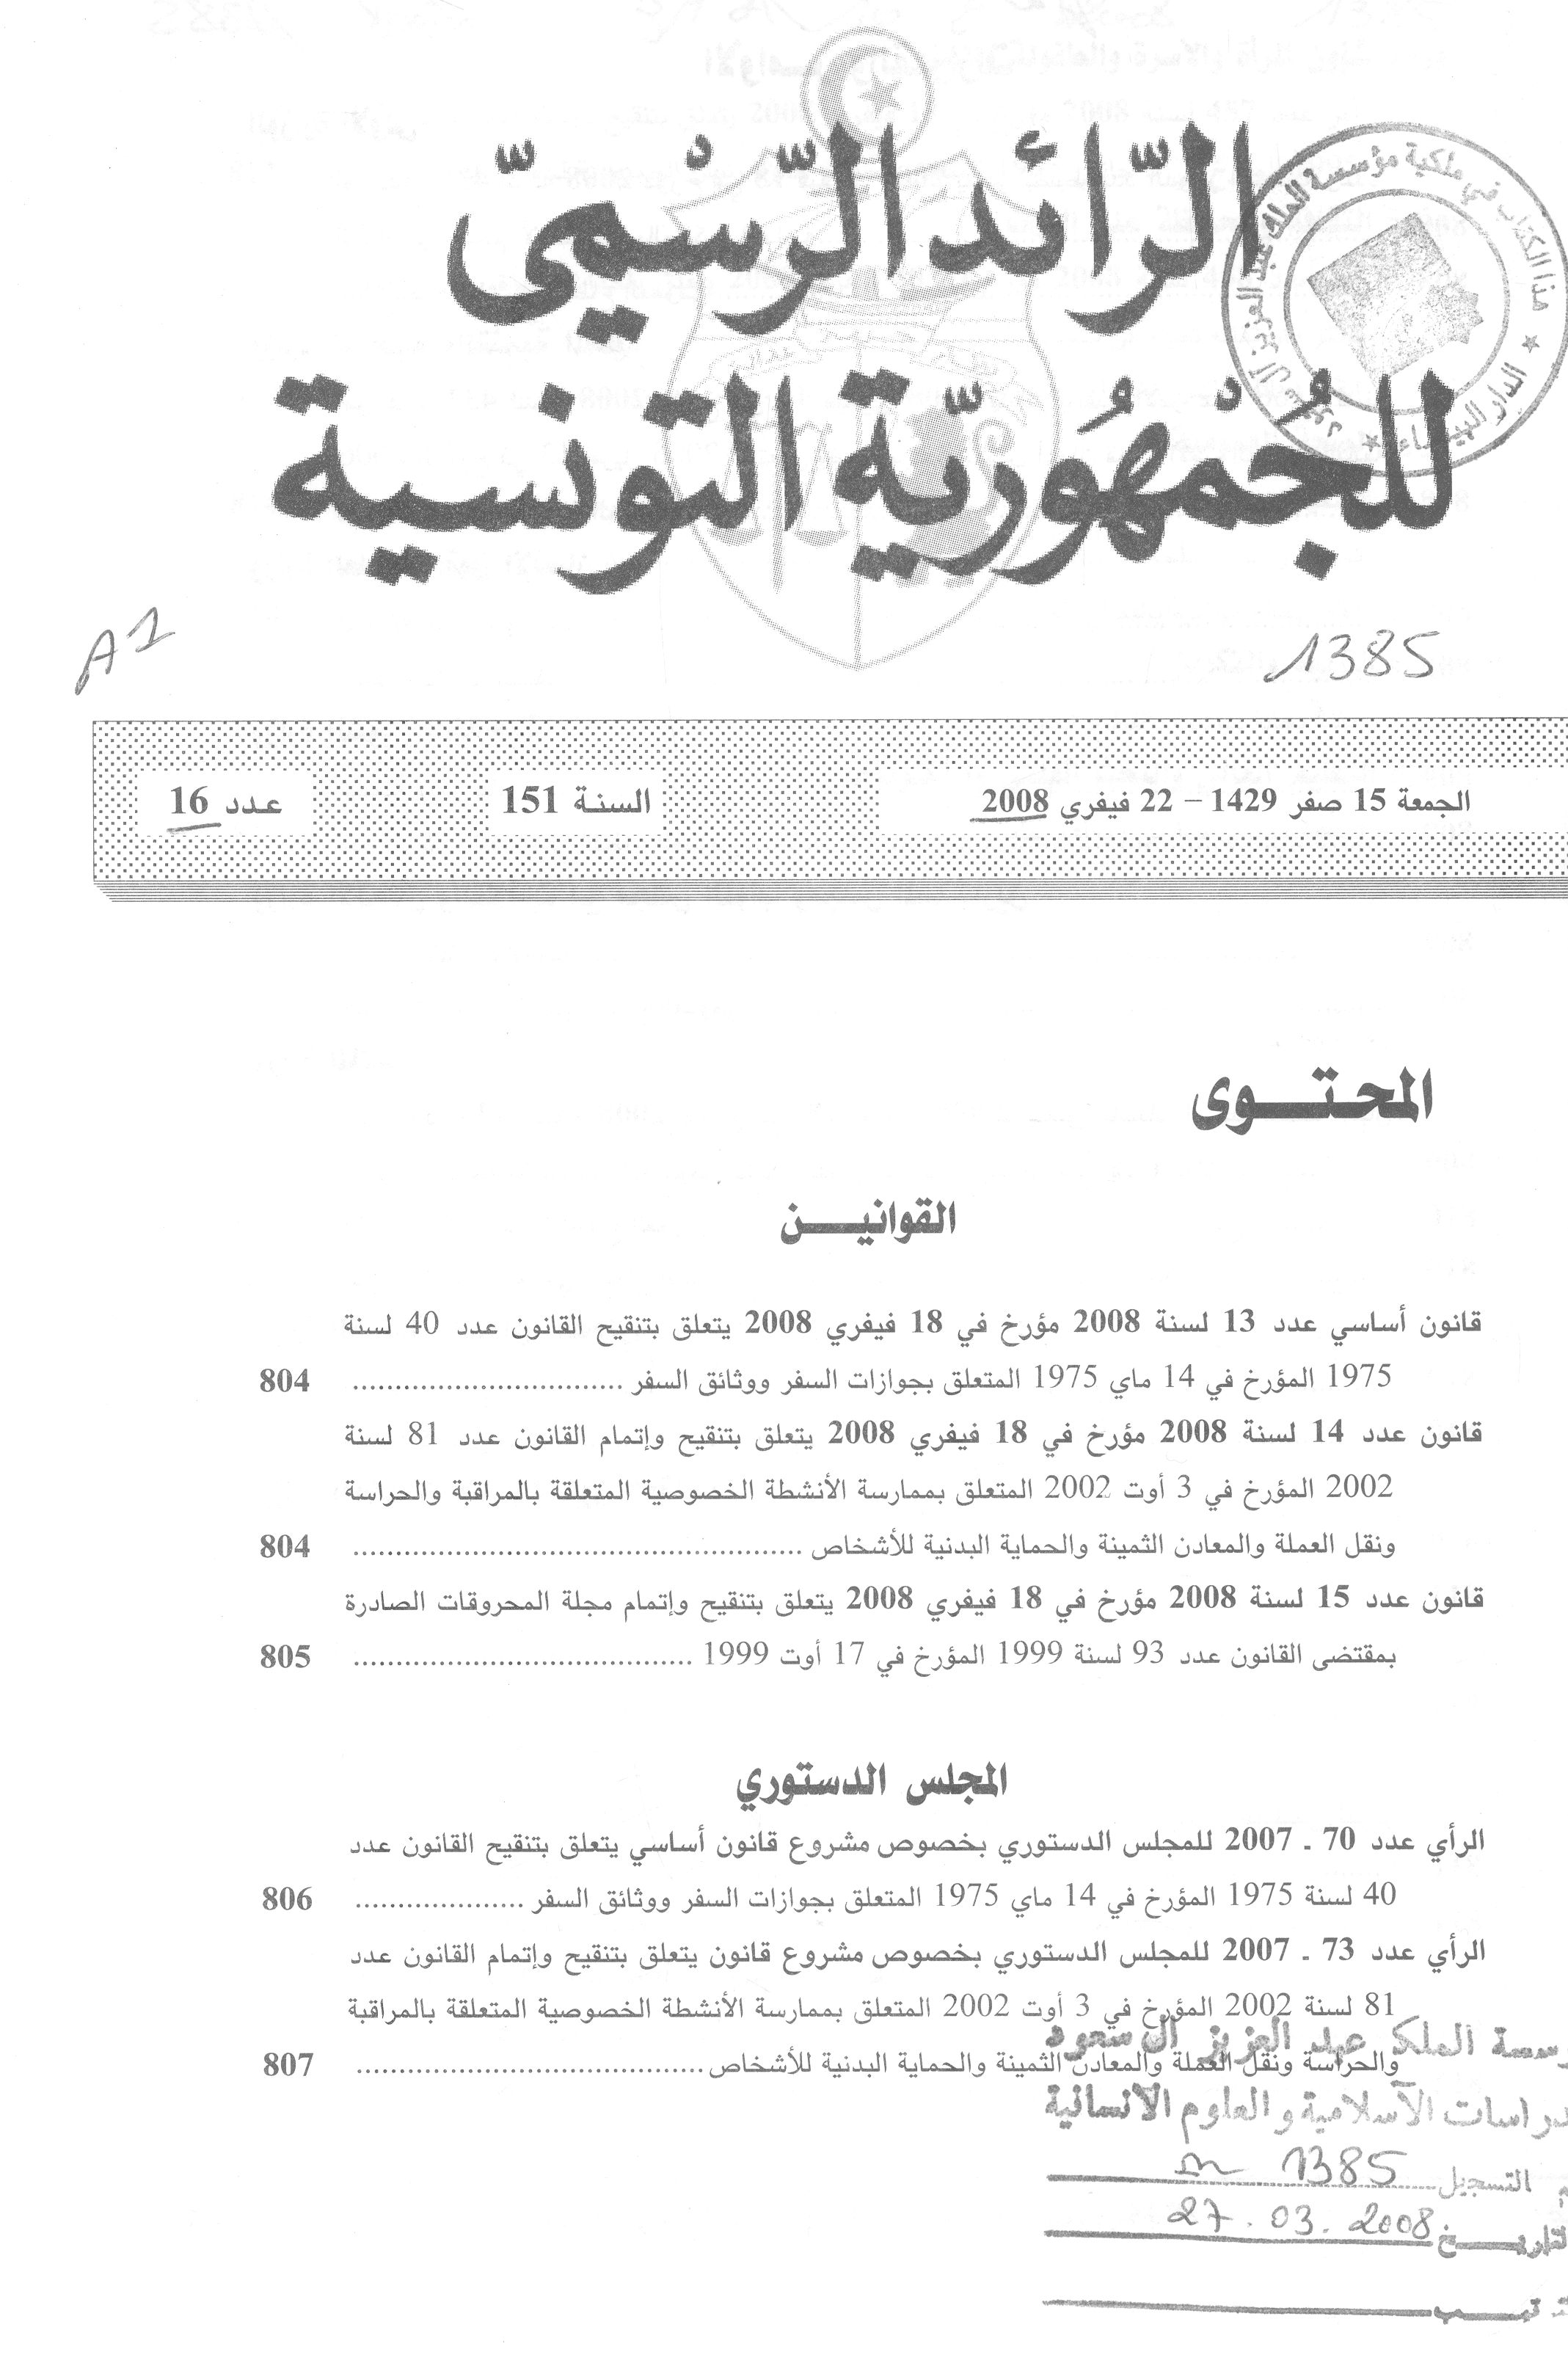 الرّائد الرّسْميّ
للجُمْهُوريّة التونسية
هذا الكتاب في ملكية مؤسسة الملك عبد العزيز آل سعود
★ الدار البيضاء ★
A1
1385
الجمعة 15 صفر 1429 – 22 فيفري 2008
السنة 151
عدد 16
المحتوى
القوانين
قانون أساسي عدد 13 لسنة 2008 مؤرخ في 18 فيفري 2008 يتعلق بتنقيح القانون عدد 40 لسنة
1975 المؤرخ في 14 ماي 1975 المتعلق بجوازات السفر ووثائق السفر ................................ 804
قانون عدد 14 لسنة 2008 مؤرخ في 18 فيفري 2008 يتعلق بتنقيح وإتمام القانون عدد 81 لسنة
2002 المؤرخ في 3 أوت 2002 المتعلق بممارسة الأنشطة الخصوصية المتعلقة بالمراقبة والحراسة
ونقل العملة والمعادن الثمينة والحماية البدنية للأشخاص ..................................................... 804
قانون عدد 15 لسنة 2008 مؤرخ في 18 فيفري 2008 يتعلق بتنقيح وإتمام مجلة المحروقات الصادرة
بمقتضى القانون عدد 93 لسنة 1999 المؤرخ في 17 أوت 1999 ........................................ 805
المجلس الدستوري
الرأي عدد 70 ـ 2007 للمجلس الدستوري بخصوص مشروع قانون أساسي يتعلق بتنقيح القانون عدد
40 لسنة 1975 المؤرخ في 14 ماي 1975 المتعلق بجوازات السفر ووثائق السفر .................... 806
الرأي عدد 73 ـ 2007 للمجلس الدستوري بخصوص مشروع قانون يتعلق بتنقيح وإتمام القانون عدد
81 لسنة 2002 المؤرخ في 3 أوت 2002 المتعلق بممارسة الأنشطة الخصوصية المتعلقة بالمراقبة
والحراسة ونقل العملة والمعادن الثمينة والحماية البدنية للأشخاص ......................................... 807
الملك عبد العزيز آل سعود
الآسلامية والعلوم الانسانية
التسجيل 1385
27.03.2008